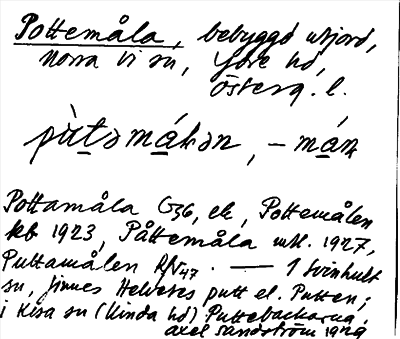 Pottemåla, bebyggd utjord,
Norra Vi sn, Ydre hd,
Österg. l.
pùtəmákən, – mán
Pottamåla G36, ek, Pottemålen
kb 1923, Påttemåla mtl. 1927,
Puttamålen RN47. — I Svinhult
sn, finnes Helvetes putt el. Putten;
i Kisa sn (Kinda hd) Puttebackarna,
Axel Sandström 1929